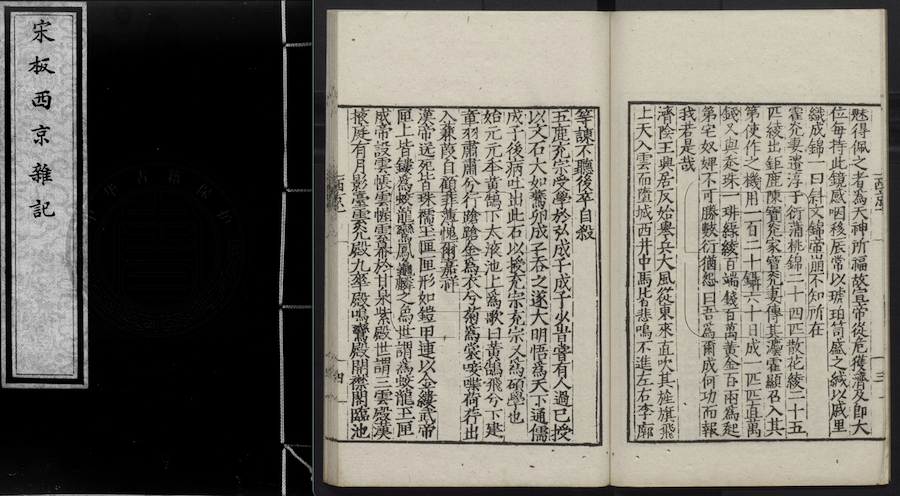 宋板西京雜記
魅得佩之者為天神所福故宣帝從危獲濟及即大
位每持此鏡感咽移辰常以琥珀笥盛之緘以戚里
織成錦一曰斜文錦帝崩不知所在
霍光妻遺淳于衍蒲桃錦二十四匹散花綾二十五
匹綾出鉅鹿陳寶光家寶光妻傳其灋霍顯召入其
第使作之機用一百二十鑷六十日成一匹匹直萬
錢又與走珠一琲綠綾百端錢百萬黃金百兩為起
第宅奴婢不可勝數衍猶怨曰吾為爾成何功而報
我若是哉
濟陰王興居反始舉兵大風從東來直吹其旌旗飛
上天入雲而墮城西井中馬皆悲鳴不進左右李廓
等諫不聽後卒自殺
五鹿充宗受學於弘成子成子少時嘗有人過已授
以文石大如鷰卵成子吞之遂大明悟為天下通儒
成子後病吐出此石以授充宗充宗又為碩學也
始元元年黃鵠下太液池上為歌曰黃鵠飛兮下建
章羽肅肅兮行蹌蹌金為衣兮菊為裳唼喋荷荇出
入蒹葭自顧菲薄愧爾嘉祥
漢帝送死皆珠襦玉匣匣形如鎧甲連以金縷武帝
匣上皆鏤為蛟龍鸞鳳龜麟之象世謂為蛟龍玉匣
成帝設雲帳雲幄雲幕於甘泉紫殿世謂三雲殿漢
掖庭有月影臺雲光殿九華殿鳴鸞殿開襟閣臨池